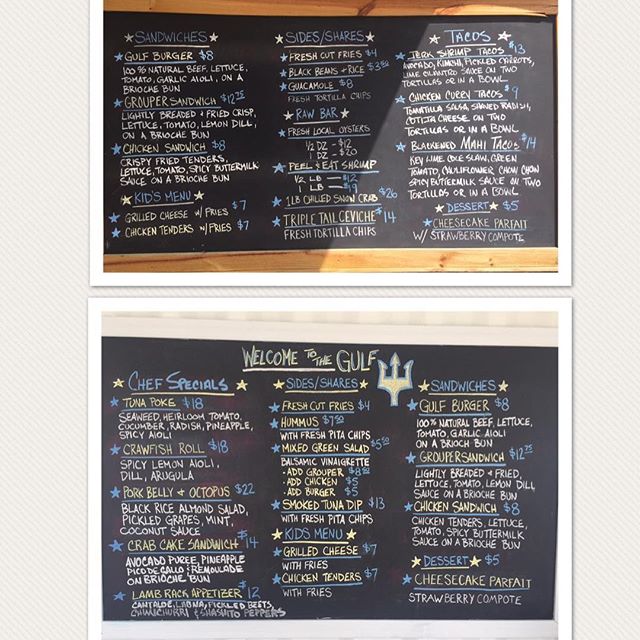 SANDWICHES
GULF BURGER $8
100% NATURAL BEEF, LETTUCE,
TOMATO, GARLIC AIOLI, ON A
BRIOCHE BUN
GROUPER SANDWICH $12.25
LIGHTLY BREADED + FRIED CRISP,
LETTUCE, TOMATO, LEMON DILL,
ON A BRIOCHE BUN
CHICKEN SANDWICH $8
CRISPY FRIED TENDERS,
LETTUCE, TOMATO, SPICY BUTTERMILK
SAUCE ON A BRIOCHE BUN
KID'S MENU
GRILLED CHEESE W/FRIES $7
CHICKEN TENDERS W/FRIES $7
SIDES/SHARES
FRESH CUT FRIES $4
BLACK BEANS + RICE $3.50
GUACAMOLE $8
FRESH TORTILLA CHIPS
RAW BAR
FRESH LOCAL OYSTERS
1/2 DZ - $12
1 DZ - $20
PEEL & EAT SHRIMP
1/2 LB - $12
1 LB - $19
1LB CHILLED SNOW CRAB $26
TRIPLE TAIL CEVICHE $14
FRESH TORTILLA CHIPS
TACOS
JERK SHRIMP TACOS $13
AVOCADO, KIMCHI, PICKLED CARROTS,
LIME CILANTRO SAUCE ON TWO
TORTILLAS OR IN A BOWL
CHICKEN CURRY TACOS $9
TOMATILLA SALSA, SHAVED RADISH,
COTIJA CHEESE ON TWO
TORTILLAS OR IN A BOWL
BLACKENED MAHI TACOS $14
KEY LIME COLE SLAW, GREEN
TOMATO, CAULIFLOWER, CHOW CHOW
SPICY BUTTERMILK SAUCE ON TWO
TORTILLAS OR IN A BOWL
DESSERT $5
CHEESECAKE PARFAIT
W/ STRAWBERRY COMPOTE
WELCOME TO THE GULF
CHEF SPECIALS
TUNA POKE $18
SEAWEED, HEIRLOOM TOMATO,
CUCUMBER, RADISH, PINEAPPLE,
SPICY AIOLI
CRAWFISH ROLL $18
SPICY LEMON AIOLI,
DILL, ARUGULA
PORK BELLY + OCTOPUS $22
BLACK RICE ALMOND SALAD,
PICKLED GRAPES, MINT,
COCONUT SAUCE
CRAB CAKE SANDWICH $14
AVOCADO PUREE, PINEAPPLE
PICO DE GALLO & REMOULADE
ON BRIOCHE BUN
LAMB RACK APPETIZER $12
CANTALOPE, LABNA, PICKLED BEETS,
CHIMICHURRI & SHASHITO PEPPERS
SIDES/SHARES
FRESH CUT FRIES $4
HUMMUS $7.50
WITH FRESH PITA CHIPS
MIXED GREEN SALAD $5.50
BALSAMIC VINAIGRETTE
- ADD GROUPER $8.50
- ADD CHICKEN $5
- ADD BURGER $5
SMOKED TUNA DIP $13
WITH FRESH PITA CHIPS
KIDS MENU
GRILLED CHEESE $7
WITH FRIES
CHICKEN TENDERS $7
WITH FRIES
SANDWICHES
GULF BURGER $8
100% NATURAL BEEF, LETTUCE,
TOMATO, GARLIC AIOLI
ON A BRIOCHE BUN
GROUPER SANDWICH $12.25
LIGHTLY BREADED + FRIED,
LETTUCE, TOMATO, LEMON DILL
SAUCE ON A BRIOCHE BUN
CHICKEN SANDWICH $8
CHICKEN TENDERS, LETTUCE,
TOMATO, SPICY BUTTERMILK
SAUCE ON A BRIOCHE BUN
DESSERT $5
CHEESECAKE PARFAIT
STRAWBERRY COMPOTE